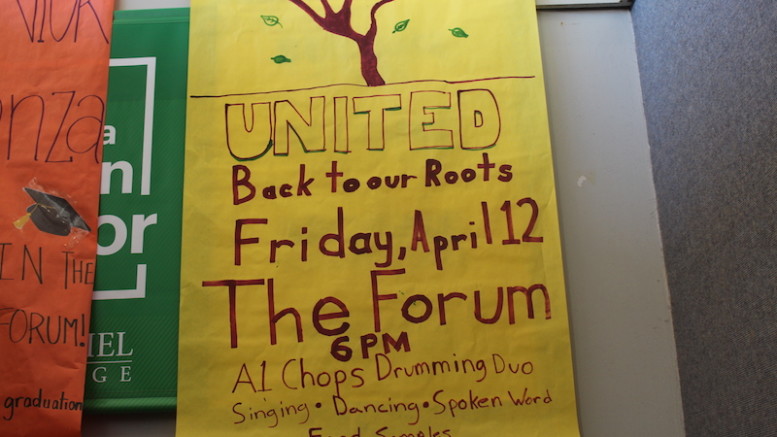 nza
IN THE
FORUM!
graduation
a
n
or
IEL
GE
UNITED
Back to our Roots
Friday, April 12
The Forum
6 PM
A1 Chops Drumming Duo
Singing • Dancing • Spoken Word
Food Samples